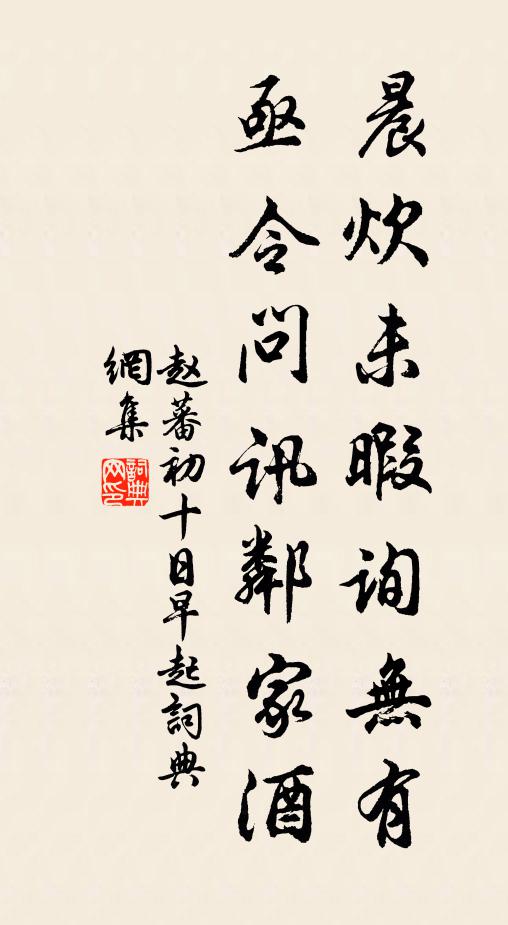 晨炊未暇詢無有
亟令問訊鄰家酒
赵蕃初十日早起詞典
網集
詞典網印